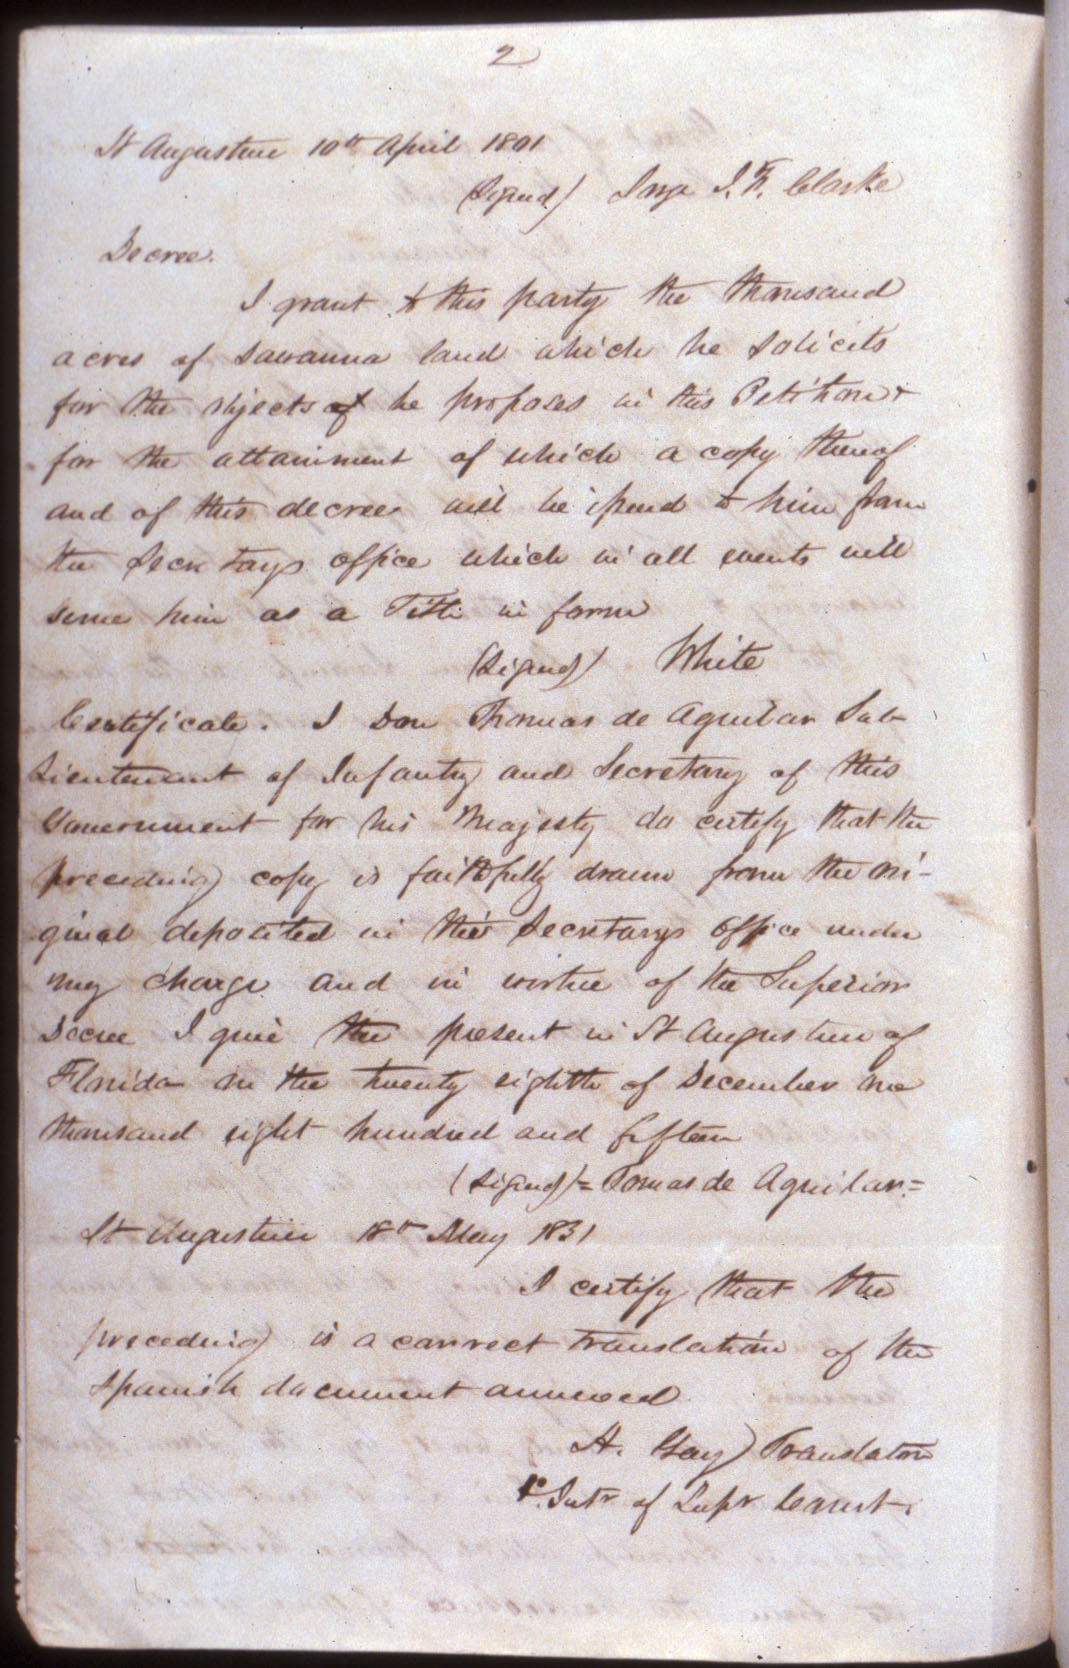 2
St Augustine 10th April 1801
(Signed) Jorge J. F. Clarke
Decree.
I grant to this party the thousand
acres of Savanna land which he solicits
for the objects he proposes in this Petition &
for the attainment of which a copy thereof
and of this decree will be issued to him from
the Secretarys office which in all events will
serve him as a Title in form
(Signed) White
Certificate. I Don Thomas de Aguilar Sub-
Lieutenant of Infantry and Secretary of this
Government for his Majesty do certify that the
preceding copy is faithfully drawn from the ori-
ginal deposited in the Secretarys office under
my charge and in virtue of the Superior
Decree I give the present in St Augustine of
Florida on the twenty eighth of December one
thousand eight hundred and fifteen
(Signed) = Tomas de Aguilar. =
St Augustine 18th May 1831
I certify that the
preceding is a correct translation of the
Spanish document annexed
Translator
of Supr Court.